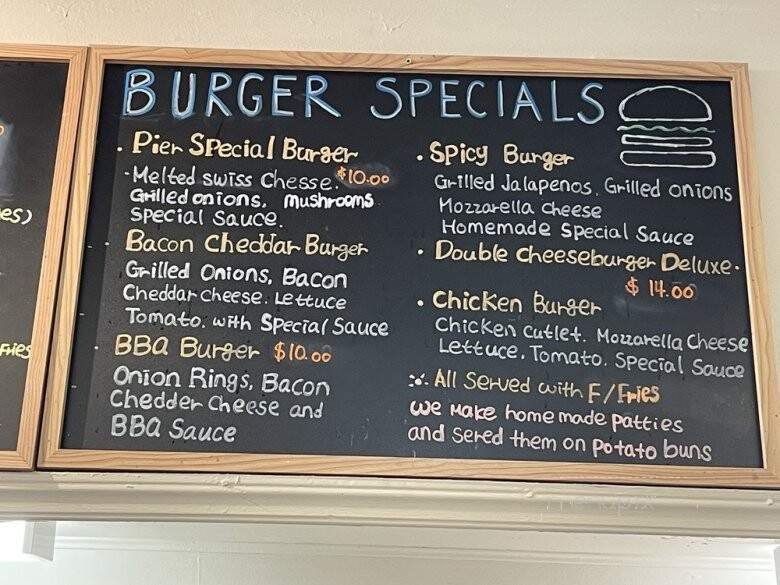 BURGER SPECIALS
. Pier Special Burger
-Melted swiss Chesse. $10.00
Grilled onions. mushrooms
special sauce.
Bacon Cheddar Burger
Grilled Onions, Bacon
Cheddar cheese. Lettuce
Tomato. with Special Sauce
BBA Burger $10.00
Onion Rings, Bacon
Chedder Cheese and
BBA Sauce
. Spicy Burger
Grilled Jalapenos. Grilled onions
Mozzarella cheese
Homemade Special Sauce
. Double cheeseburger Deluxe.
$ 14.00
. Chicken Burger
Chicken cutlet. Mozzarella Cheese
Lettuce. Tomato. Special Sauce
All Served with F/Fries
We Make home made patties
and sered them on potato buns
es)
Fries